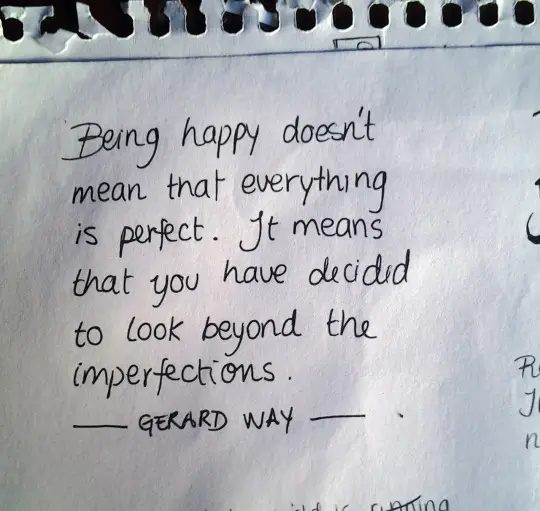 Being happy doesn't
mean that everything
is perfect. It means
that you have decided
to look beyond the
imperfections.
— GERARD WAY —
is running